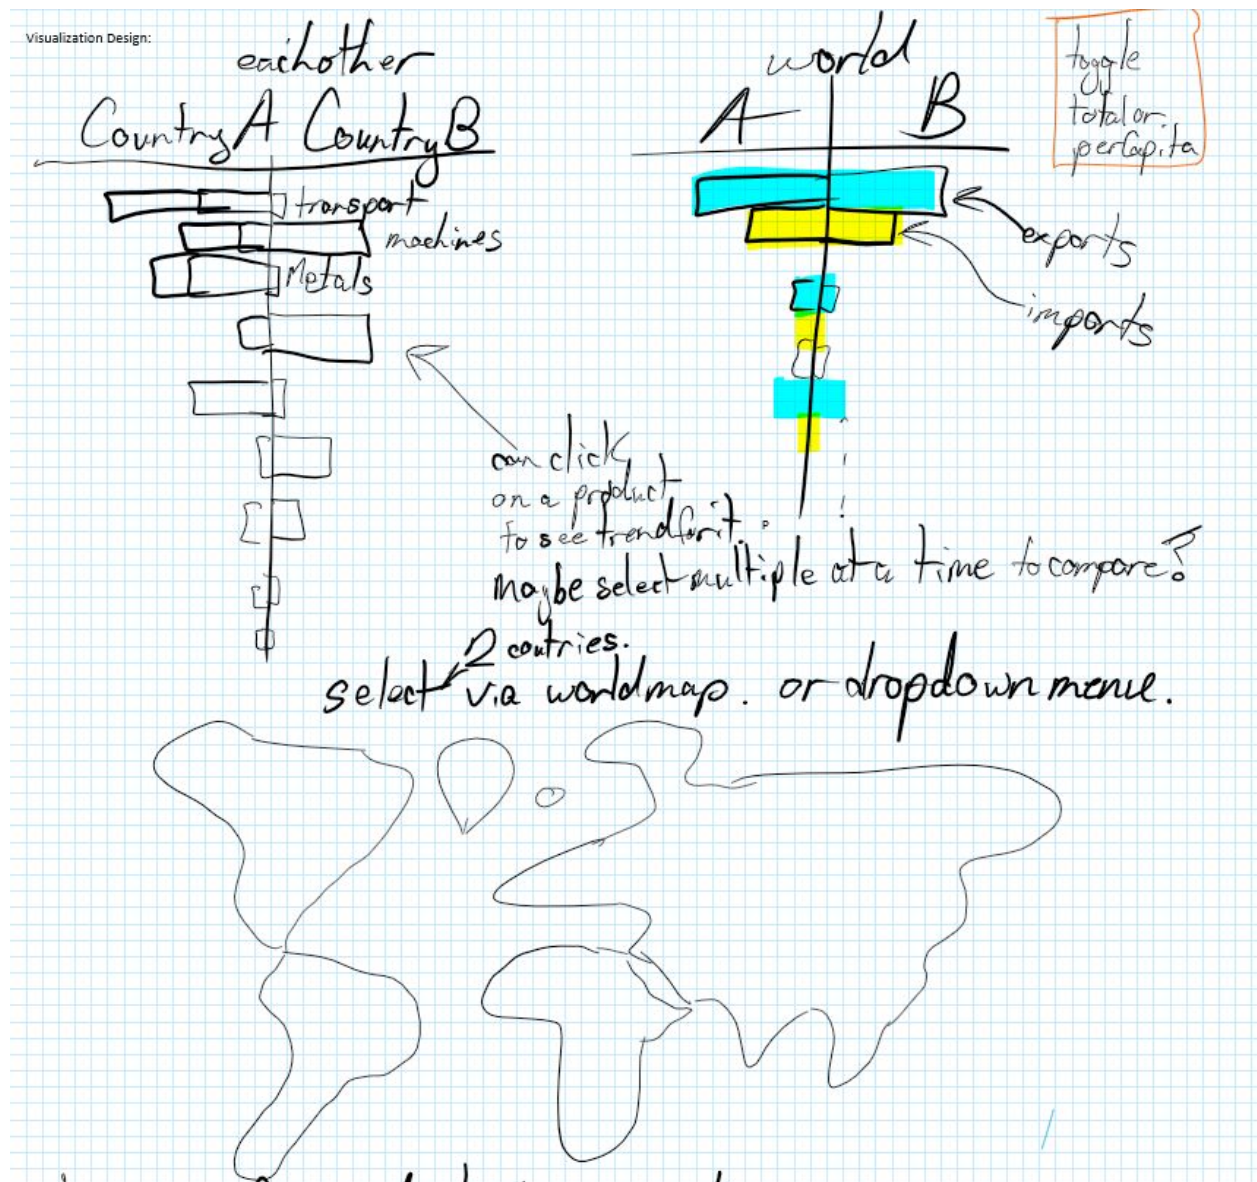 Visualization Design:
eachother
Country A Country B
transport
machines
Metals
world
A B
toggle
total or
perCapita
exports
imports
can click
on a product
to see trend for it.
maybe select multiple at a time to compare?
2 contries.
select via world map. or dropdown menu.